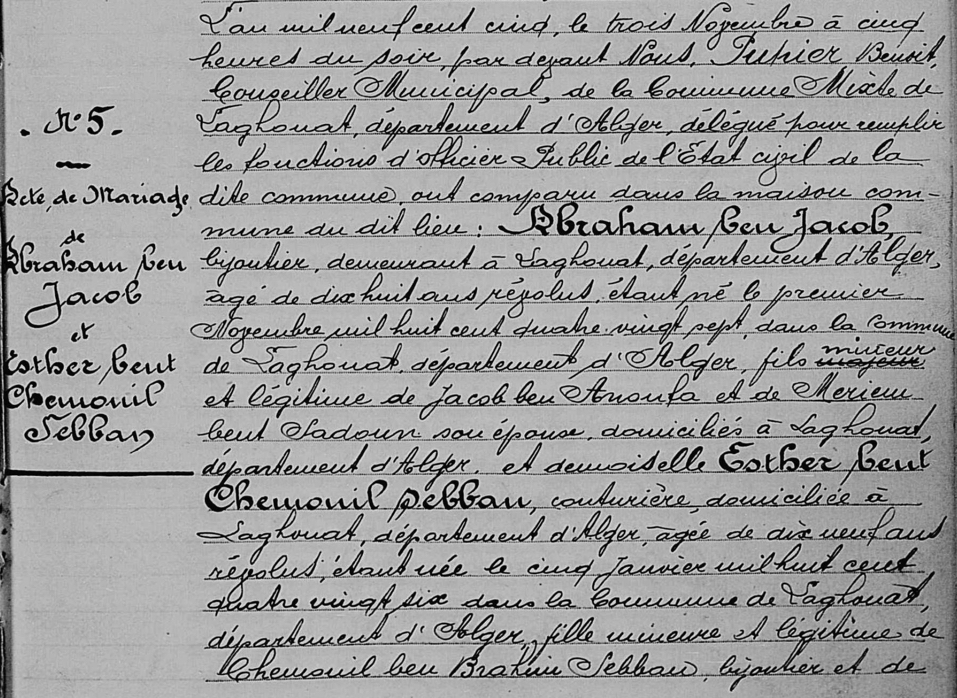 L'an mil neuf cent cinq, le trois Novembre à cinq
heures du soir, par devant Nous, Benoit,
Conseiller Municipal, de la Commune Mixte de
Laghouat, département d'Alger, délégué pour remplir
les fonctions d'officier Public de l'État civil de la
dite commune, ont comparu dans la maison com-
mune du dit lieu : Abraham ben Jacob,
bijoutier, demeurant à Laghouat, département d'Alger,
âgé de dix huit ans révolus, étant né le premier
Novembre mil huit cent quatre vingt sept, dans la Commune
de Laghouat, département d'Alger, fils majeur mineur
et légitime de Jacob ben Anoufa et de Meriem
bent Sadoun son épouse, domiciliés à Laghouat,
département d'Alger. et demoiselle Esther bent
Chemouil Sebban, couturière, domiciliée à
Laghouat, département d'Alger, âgée de dix neuf ans
révolus, étant née le cinq Janvier mil huit cent
quatre vingt six dans la Commune de Laghouat,
département d'Alger, fille mineure et légitime de
Chemouil ben Brahim Sebban, bijoutier et de
N° 5.
Acte de Mariage
de
Abraham ben
Jacob
et
Esther bent
Chemouil
Sebban